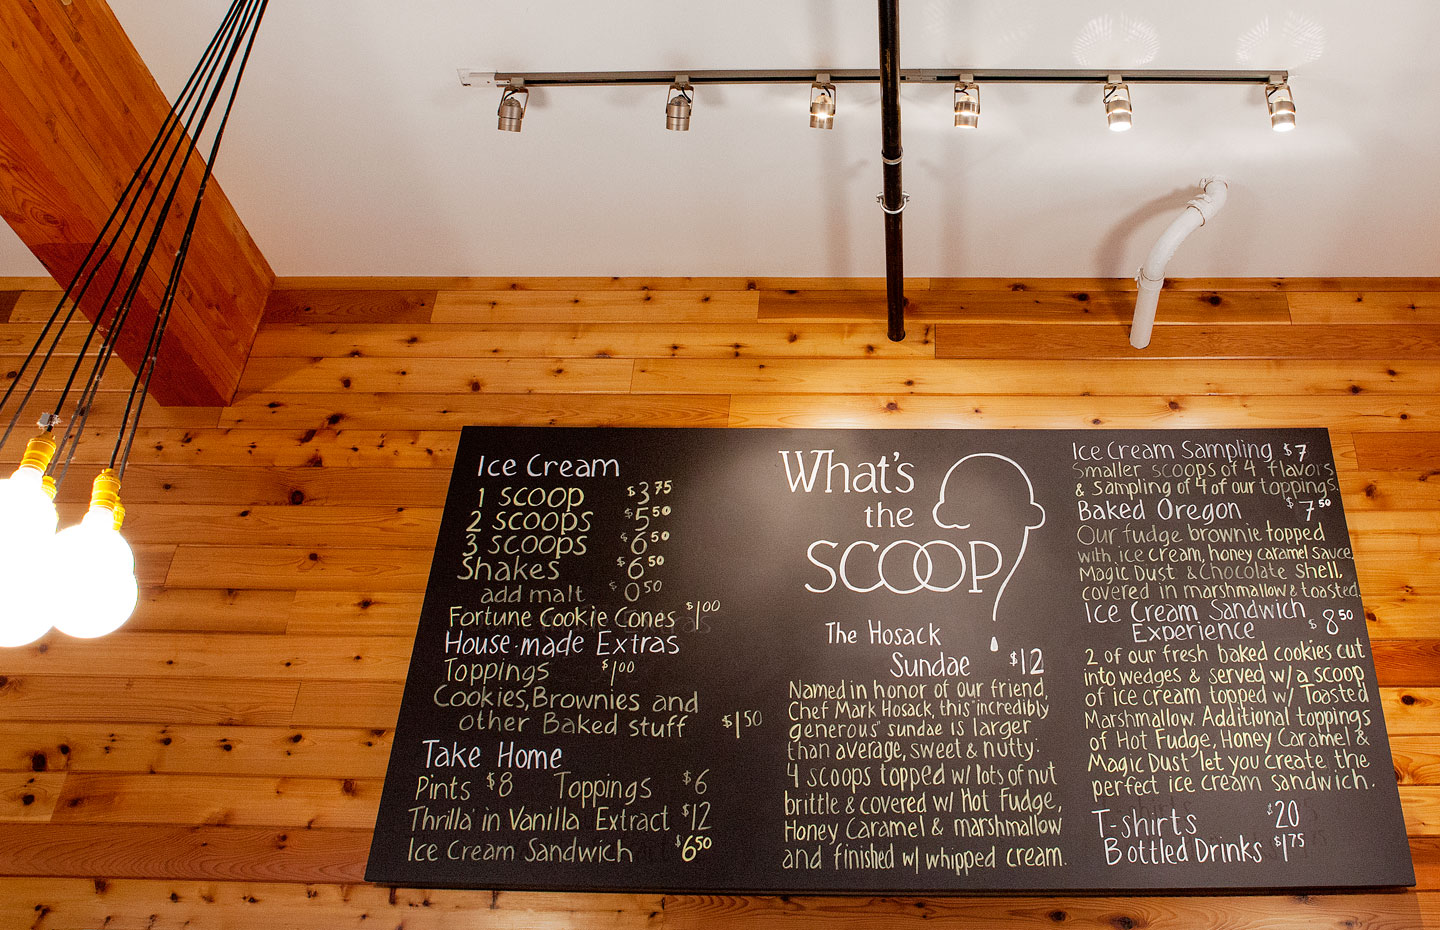 Ice Cream
1 scoop $3 75
2 scoops $5 50
3 scoops $6 50
Shakes $6 50
add malt $0 50
Fortune Cookie Cones $1 00
House-made Extras
Toppings $1 00
Cookies, Brownies and
other Baked stuff $1 50
Take Home
Pints $8 Toppings $6
Thrilla in Vanilla Extract $12
Ice Cream Sandwich $6 50
What's
the
SCOOP
The Hosack
Sundae $12
Named in honor of our friend,
Chef Mark Hosack, this "incredibly
generous" sundae is larger
than average, sweet & nutty:
4 scoops topped w/ lots of nut
brittle & covered w/ Hot Fudge,
Honey Caramel & marshmallow
and finished w/ whipped cream.
Ice Cream Sampling $7
Smaller scoops of 4 flavors
& sampling of 4 of our toppings.
Baked Oregon $7 50
Our fudge brownie topped
with ice cream, honey caramel sauce,
Magic Dust & chocolate shell,
covered in marshmallow & toasted.
Ice Cream Sandwich
Experience $8 50
2 of our fresh baked cookies cut
into wedges & served w/ a scoop
of ice cream topped w/ Toasted
Marshmallow. Additional toppings
of Hot Fudge, Honey Caramel &
Magic Dust let you create the
perfect ice cream sandwich.
T-shirts $20
Bottled Drinks $1 75